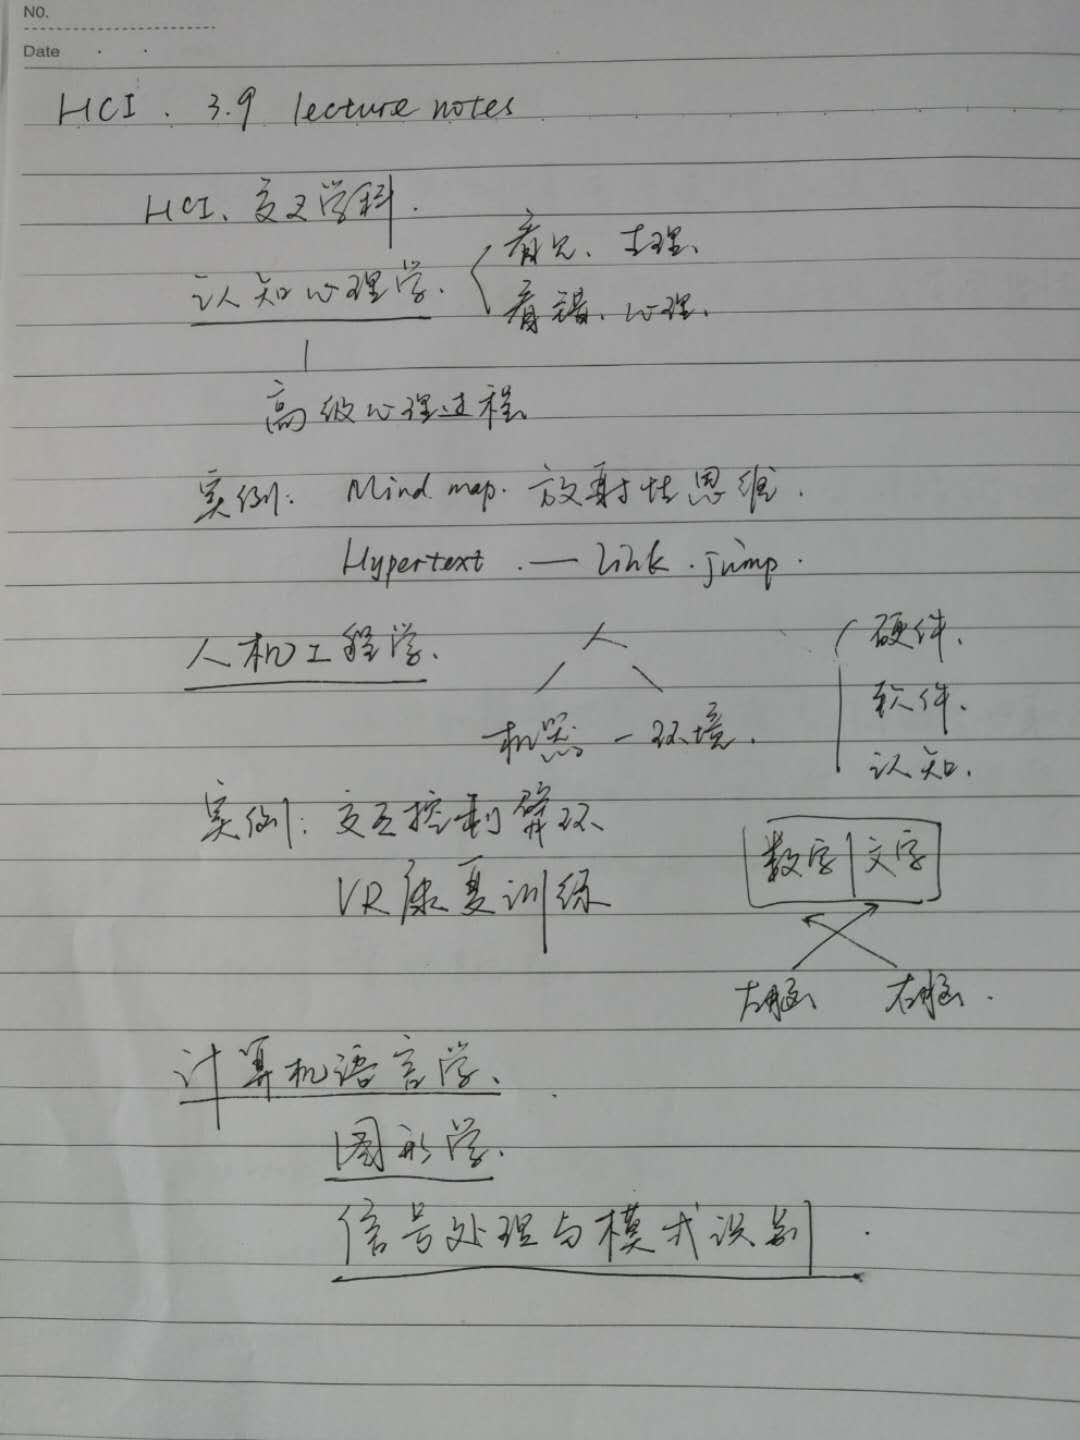 NO.
Date
HCI . 3.9 lecture notes
HCI、交叉学科.
认知心理学.
看见、生理、
看错、心理.
高级心理过程.
实例: Mind map. 放射性思维.
Hypertext . — link . jump .
人机工程学.
人
机器 — 环境.
硬件.
软件.
认知.
实例: 交互控制臂环
VR康复训练
数字|文字
左脑 右脑.
计算机语言学、
图形学.
信号处理与模式识别.